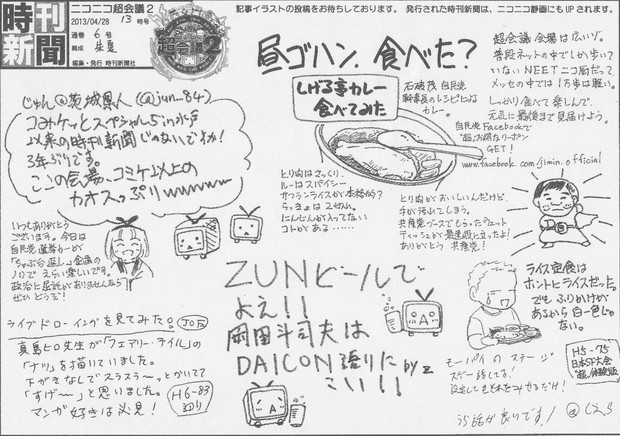 時刊新聞
ニコニコ超会議2
2013/04/28 13時号
通巻 6号
編集・発行 時刊新聞社
記事イラストの投稿をお待ちしております。 発行された時刊新聞は、ニコニコ静画にもUPされます。
超会議2
じゅん@茨城県人 (@jun_84)
コミケッとスペシャル5 in 水戸
以来の時刊新聞じゃないですか!
3年ぶりです。
ここの会場、コミケ以上の
カオスっぷりwwwww
いつもありがとう
ございます。今日は
自民党選挙カーが
「ちゃぶ台返し」企画の
ノリで えらい楽しいです。
ぜひ どうぞ!
ライブドローイングを見てみた。
真島ヒロ先生が「フェアリーテイル」の
「ナツ」を描いていました。
下がきなしでスラスラ〜っとかいてて
「すげ〜」と思いました。
マンガ好きは必見!
H6-83
辺り
昼ゴハン、食べた?
しげる亭カレー
食べてみた
石破茂 自民党
幹事長のレシピによる
カレー。
とり肉はざっくり、
ルーはスパイシー
サフランライスが本格的?
らっきょは2つぶ。
にんじんが入ってない
コトがある……
とり肉がおいしいんだけど、
手が汚れてしまう。
共産党ブースでもらったウェット
ティッシュが最速役に立ったよ!
ありがとう 共産党!
超会議 会場は広いゾ。
普段ネットの中でしか歩いて
いないNEETニコ厨だって、
メッセの中では1万歩は軽い。
しっかり食べて楽しんで、
元気に最後まで見届けよう。
自民党Facebookで
"超"お得なクーポン
GET!
www.facebook.com/jimin.official
ZUNビールで
よえ!!
岡田斗司夫は
DAICON語りに
こい!!
by Z
ライス定食は
ホントにライスだッた。
でも、ふりかけが
あるから白一色じゃ
ない。
H5-75
日本ミジ大会
モーパイのステージ